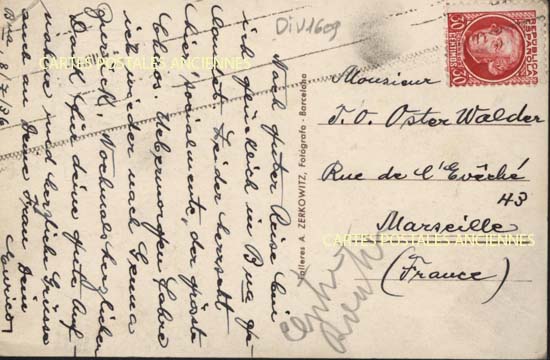 Nach guter Reise bin
ich glücklich in Bna ge-
landet. Leider herrscht
hier socialmente der grösste
Chaos. Uebermorgen fahre
ich wieder nach Genua
zurück. Nochmals herzlichen
Dank für deine gute Auf-
nahme und herzliche Grüsse
auch an Deine Frau Dein
Enrico
Bna 8/7/36
DIV1609
REPUBLICA
ESPAÑOLA
30 CENTIMOS 30
Monsieur
T. O. Oster Walder
Rue de l'Evêché
43
Marseille
(France)
Talleres A. ZERKOWITZ, Fotógrafo - Barcelona
CARTES POSTALES ANCIENNES
CARTES POSTALES ANCIENNES